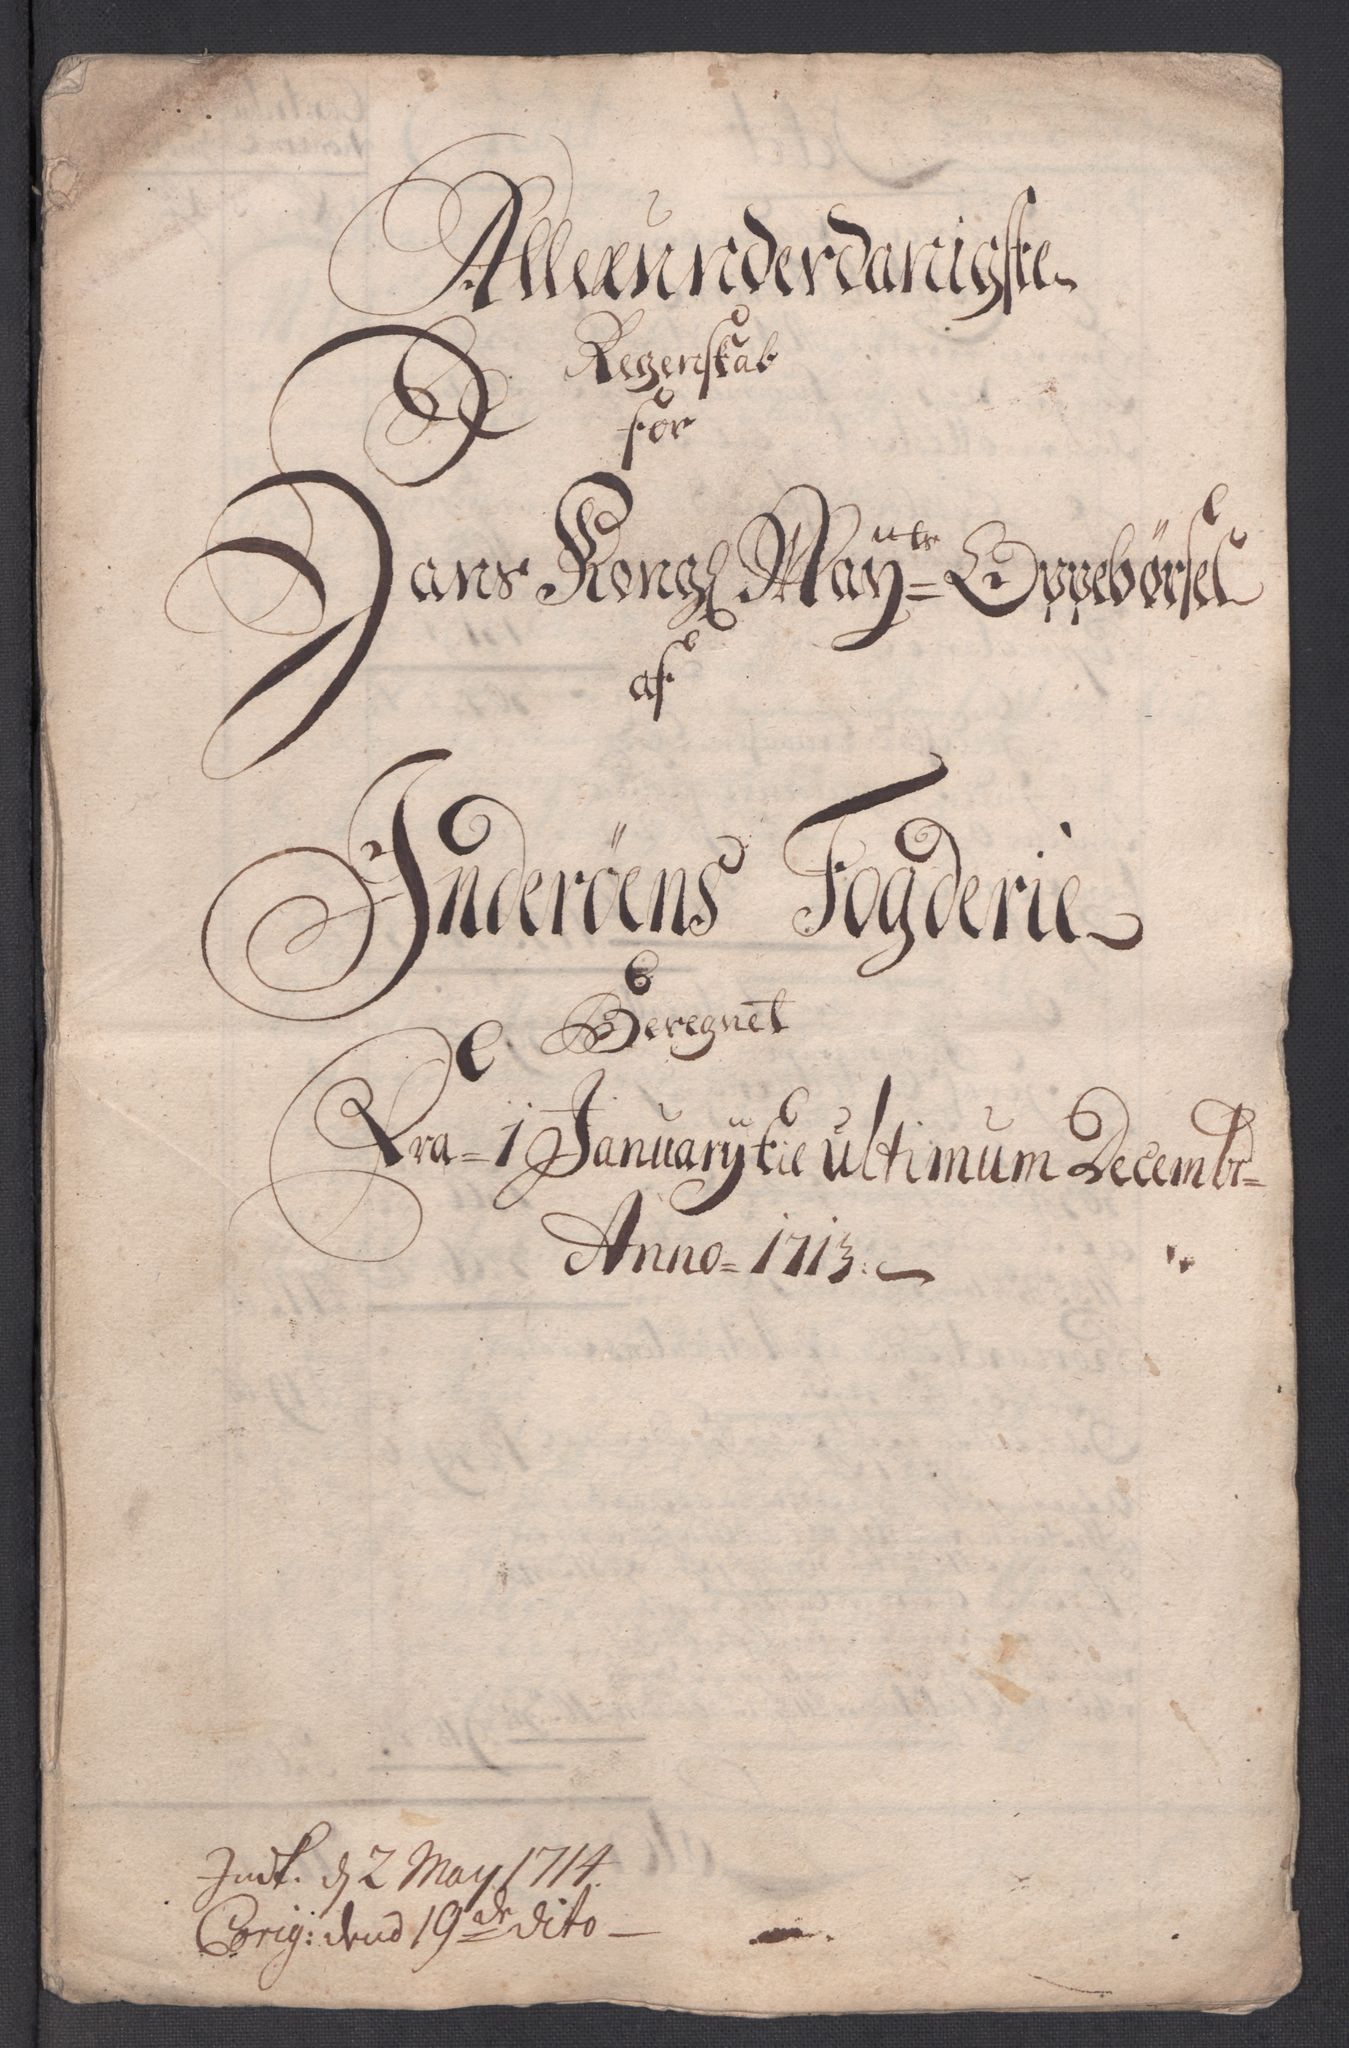 Allerunnderdanigste
Regenskab
for
Hans Kongl Mayts Oppebørsel
af
Inderöens Fogderie
Beregnet
Fra 1 January til ultimum Decembr
Anno 1713.
Indk. d 2 May 1714.
Corig: dend 19de dito